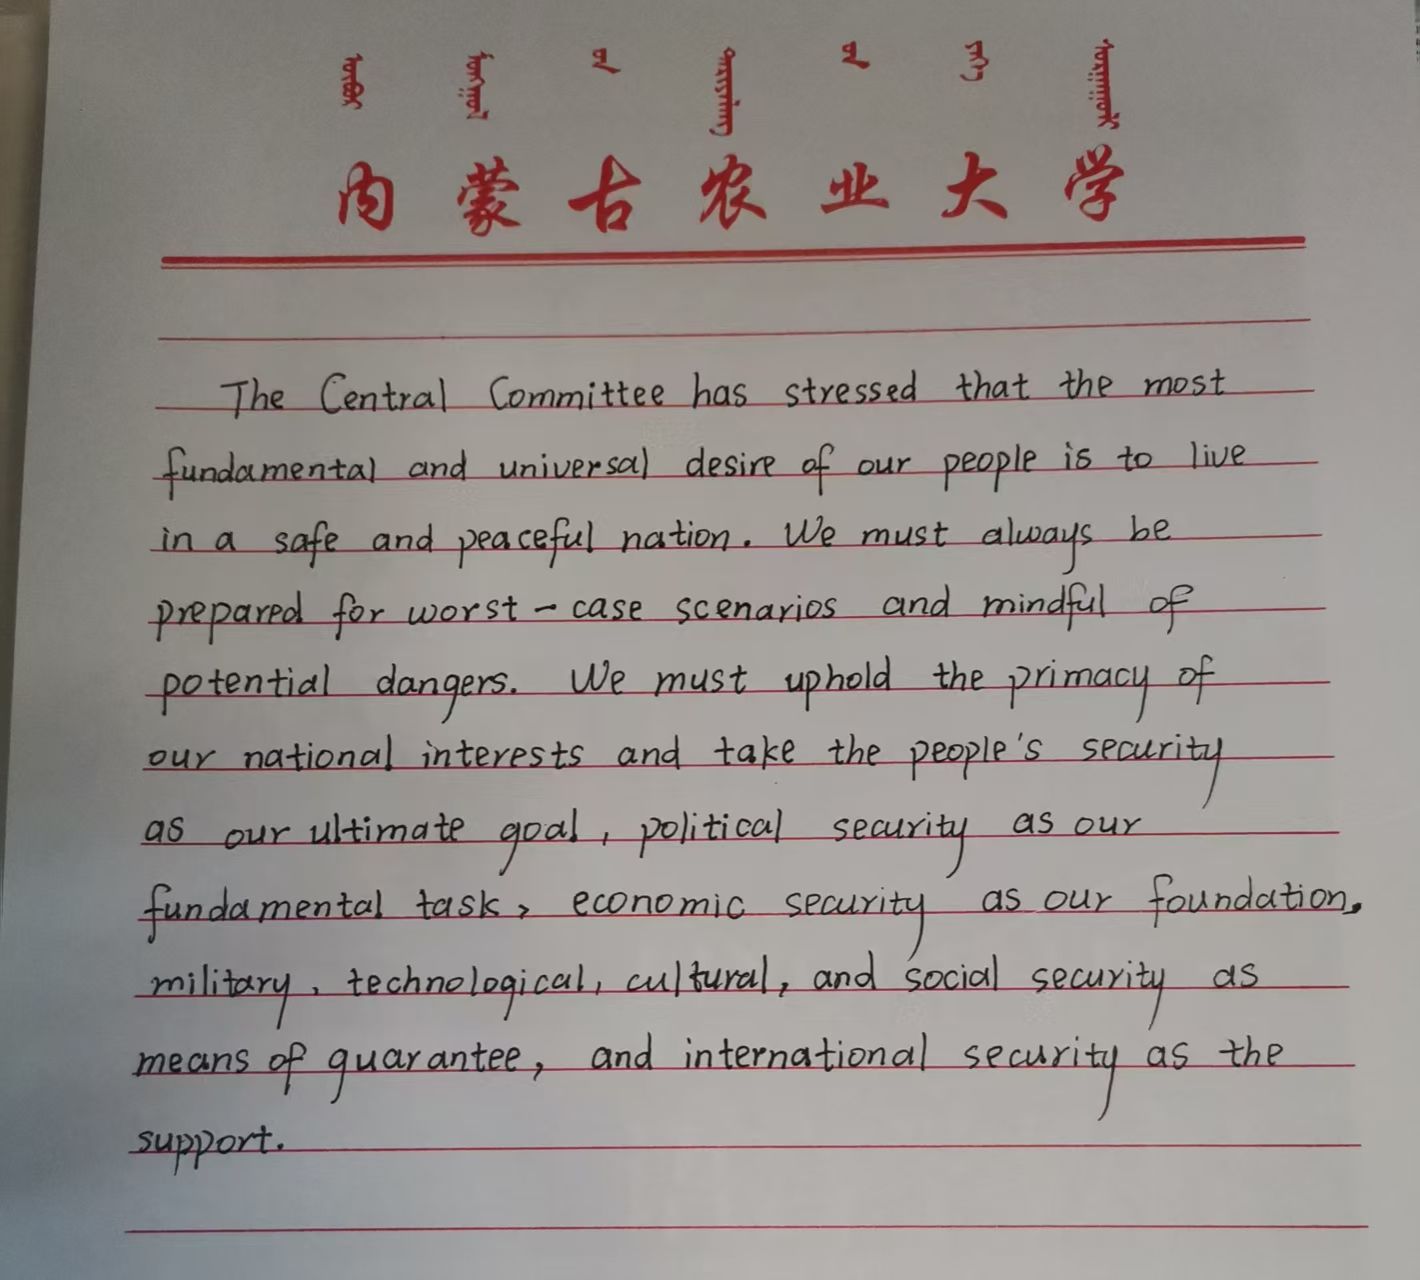 内蒙古农业大学
The Central Committee has stressed that the most
fundamental and universal desire of our people is to live
in a safe and peaceful nation. We must always be
prepared for worst-case scenarios and mindful of
potential dangers. We must uphold the primacy of
our national interests and take the people's security
as our ultimate goal, political security as our
fundamental task, economic security as our foundation,
military, technological, cultural, and social security as
means of guarantee, and international security as the
support.